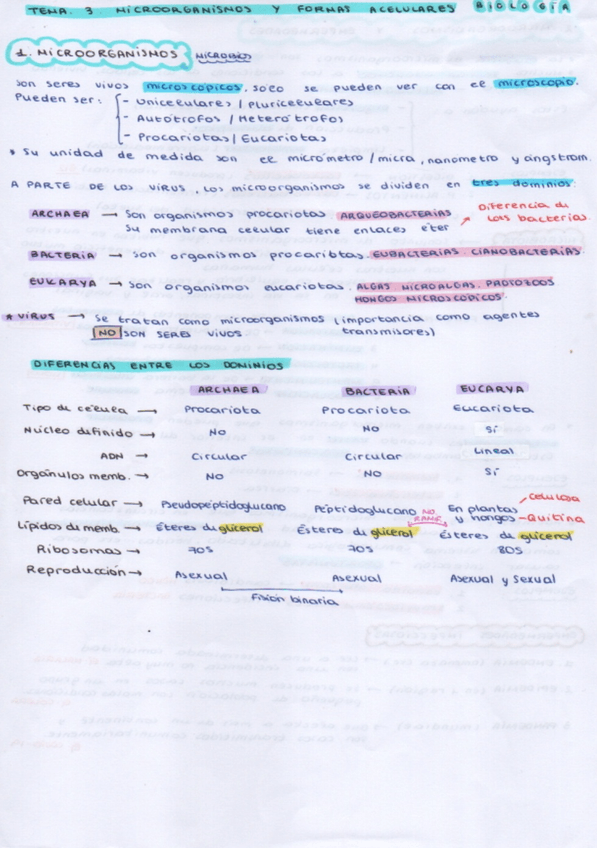 TEMA. 3 MICROORGANISMOS Y FORMAS ACELULARES BIOLOGÍA
1. MICROORGANISMOS MICROBIOS
Son seres vivos microscópicos, solo se pueden ver con el microscopio.
Pueden ser: - Unicelulares / Pluricelulares
- Autótrofos / Heterótrofos
- Procariotas / Eucariotas
* Su unidad de medida son el micrómetro / micra, nanometro y ángstrom.
A PARTE DE LOS VIRUS, los microorganismos se dividen en tres dominios:
ARCHAEA → Son organismos procariotas ARQUEOBACTERIAS
Su membrana celular tiene enlaces éter → Diferencia de las bacterias.
BACTERIA → Son organismos procariotas EUBACTERIAS. CIANOBACTERIAS.
EUKARYA → Son organismos eucariotas. ALGAS MICROALGAS. PROTOZOOS
HONGOS MICROSCÓPICOS.
* VIRUS → Se tratan como microorganismos (importancia como agentes transmisores)
NO SON SERES VIVOS
DIFERENCIAS ENTRE LOS DOMINIOS
ARCHAEA BACTERIA EUCARYA
Tipo de célula → Procariota Procariota Eucariota
Núcleo definido → NO NO Sí
ADN → Circular Circular Lineal
Orgánulos memb. → NO NO Sí
Pared celular → Pseudopéptidoglucano Péptidoglucano En plantas → celulosa y hongos → Quitina
Lípidos de memb. → Éteres de glicerol Ésteres de glicerol NO RAMIF. Ésteres de glicerol
Ribosomas → 70S 70S 80S
Reproducción → Asexual Asexual Asexual y Sexual
Fisión binaria